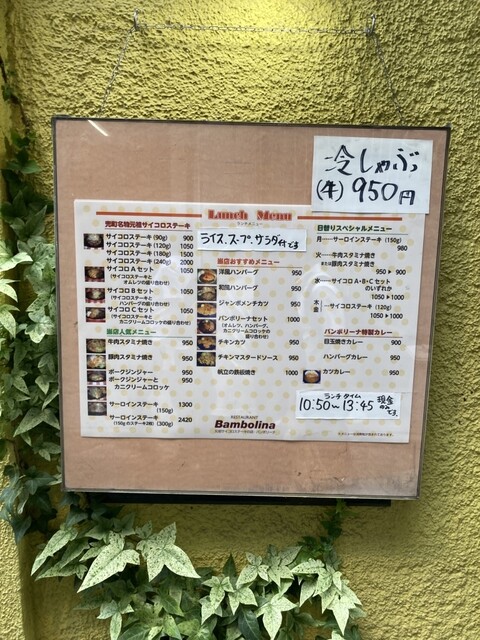 冷しゃぶ
(牛) 950円
Lunch Menu
ランチメニュー
兜町名物元祖サイコロステーキ
サイコロステーキ (90g) 900
サイコロステーキ (120g) 1050
サイコロステーキ (180g) 1500
サイコロステーキ (240g) 2000
サイコロ A セット 1050
(サイコロステーキと
オムレツの盛り合わせ)
サイコロ B セット 1050
(サイコロステーキと
ハンバーグの盛り合わせ)
サイコロ C セット 1050
(サイコロステーキと
カニクリームコロッケの盛り合わせ)
当店人気メニュー
牛肉スタミナ焼き 950
豚肉スタミナ焼き 950
ポークジンジャー 950
ポークジンジャーと 950
カニクリームコロッケ
サーロインステーキ 1300
(150g)
サーロインステーキ 2420
(150g カステーキ2枚) (300g)
ライス、スープ、サラダ付です
当店おすすめメニュー
洋風ハンバーグ 950
和風ハンバーグ 950
ジャンボメンチカツ 950
バンボリーナセット 1000
(オムレツ、ハンバーグ、
カニクリームコロッケの
盛り合わせ)
チキンカツ 950
チキンマスタードソース 950
帆立の鉄板焼き 1000
RESTAURANT
Bambolina
日替りスペシャルメニュー
月……サーロインステーキ (150g)
980
火……牛肉スタミナ焼き
または豚肉スタミナ焼き
950 ▶ 900
水……サイコロ A・B・C セット
のいずれか
1050 ▶ 1000
木
金 ……サイコロステーキ (120g)
1050 ▶ 1000
バンボリーナ特製カレー
目玉焼きカレー 900
ハンバーグカレー 950
カツカレー 950
ランチタイム
10:50〜13:45 現金のみです